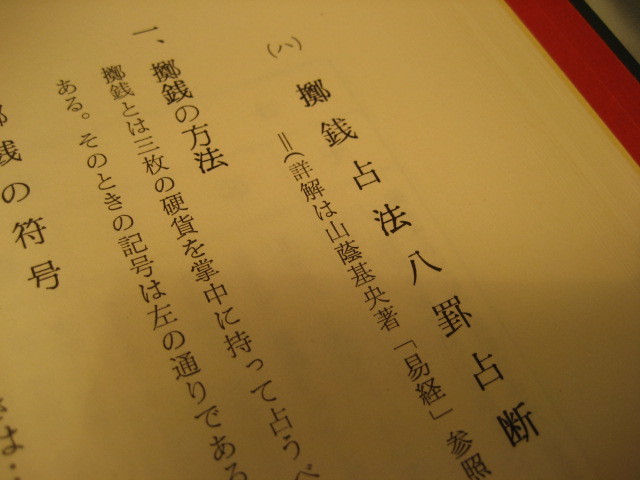 (ハ) 擲銭占法八罫占断
＝(詳解は山蔭基央著「易経」参照
一、擲銭の方法
擲銭とは三枚の硬貨を掌中に持って占うべ
ある。そのときの記号は左の通りである
銭の符号
は